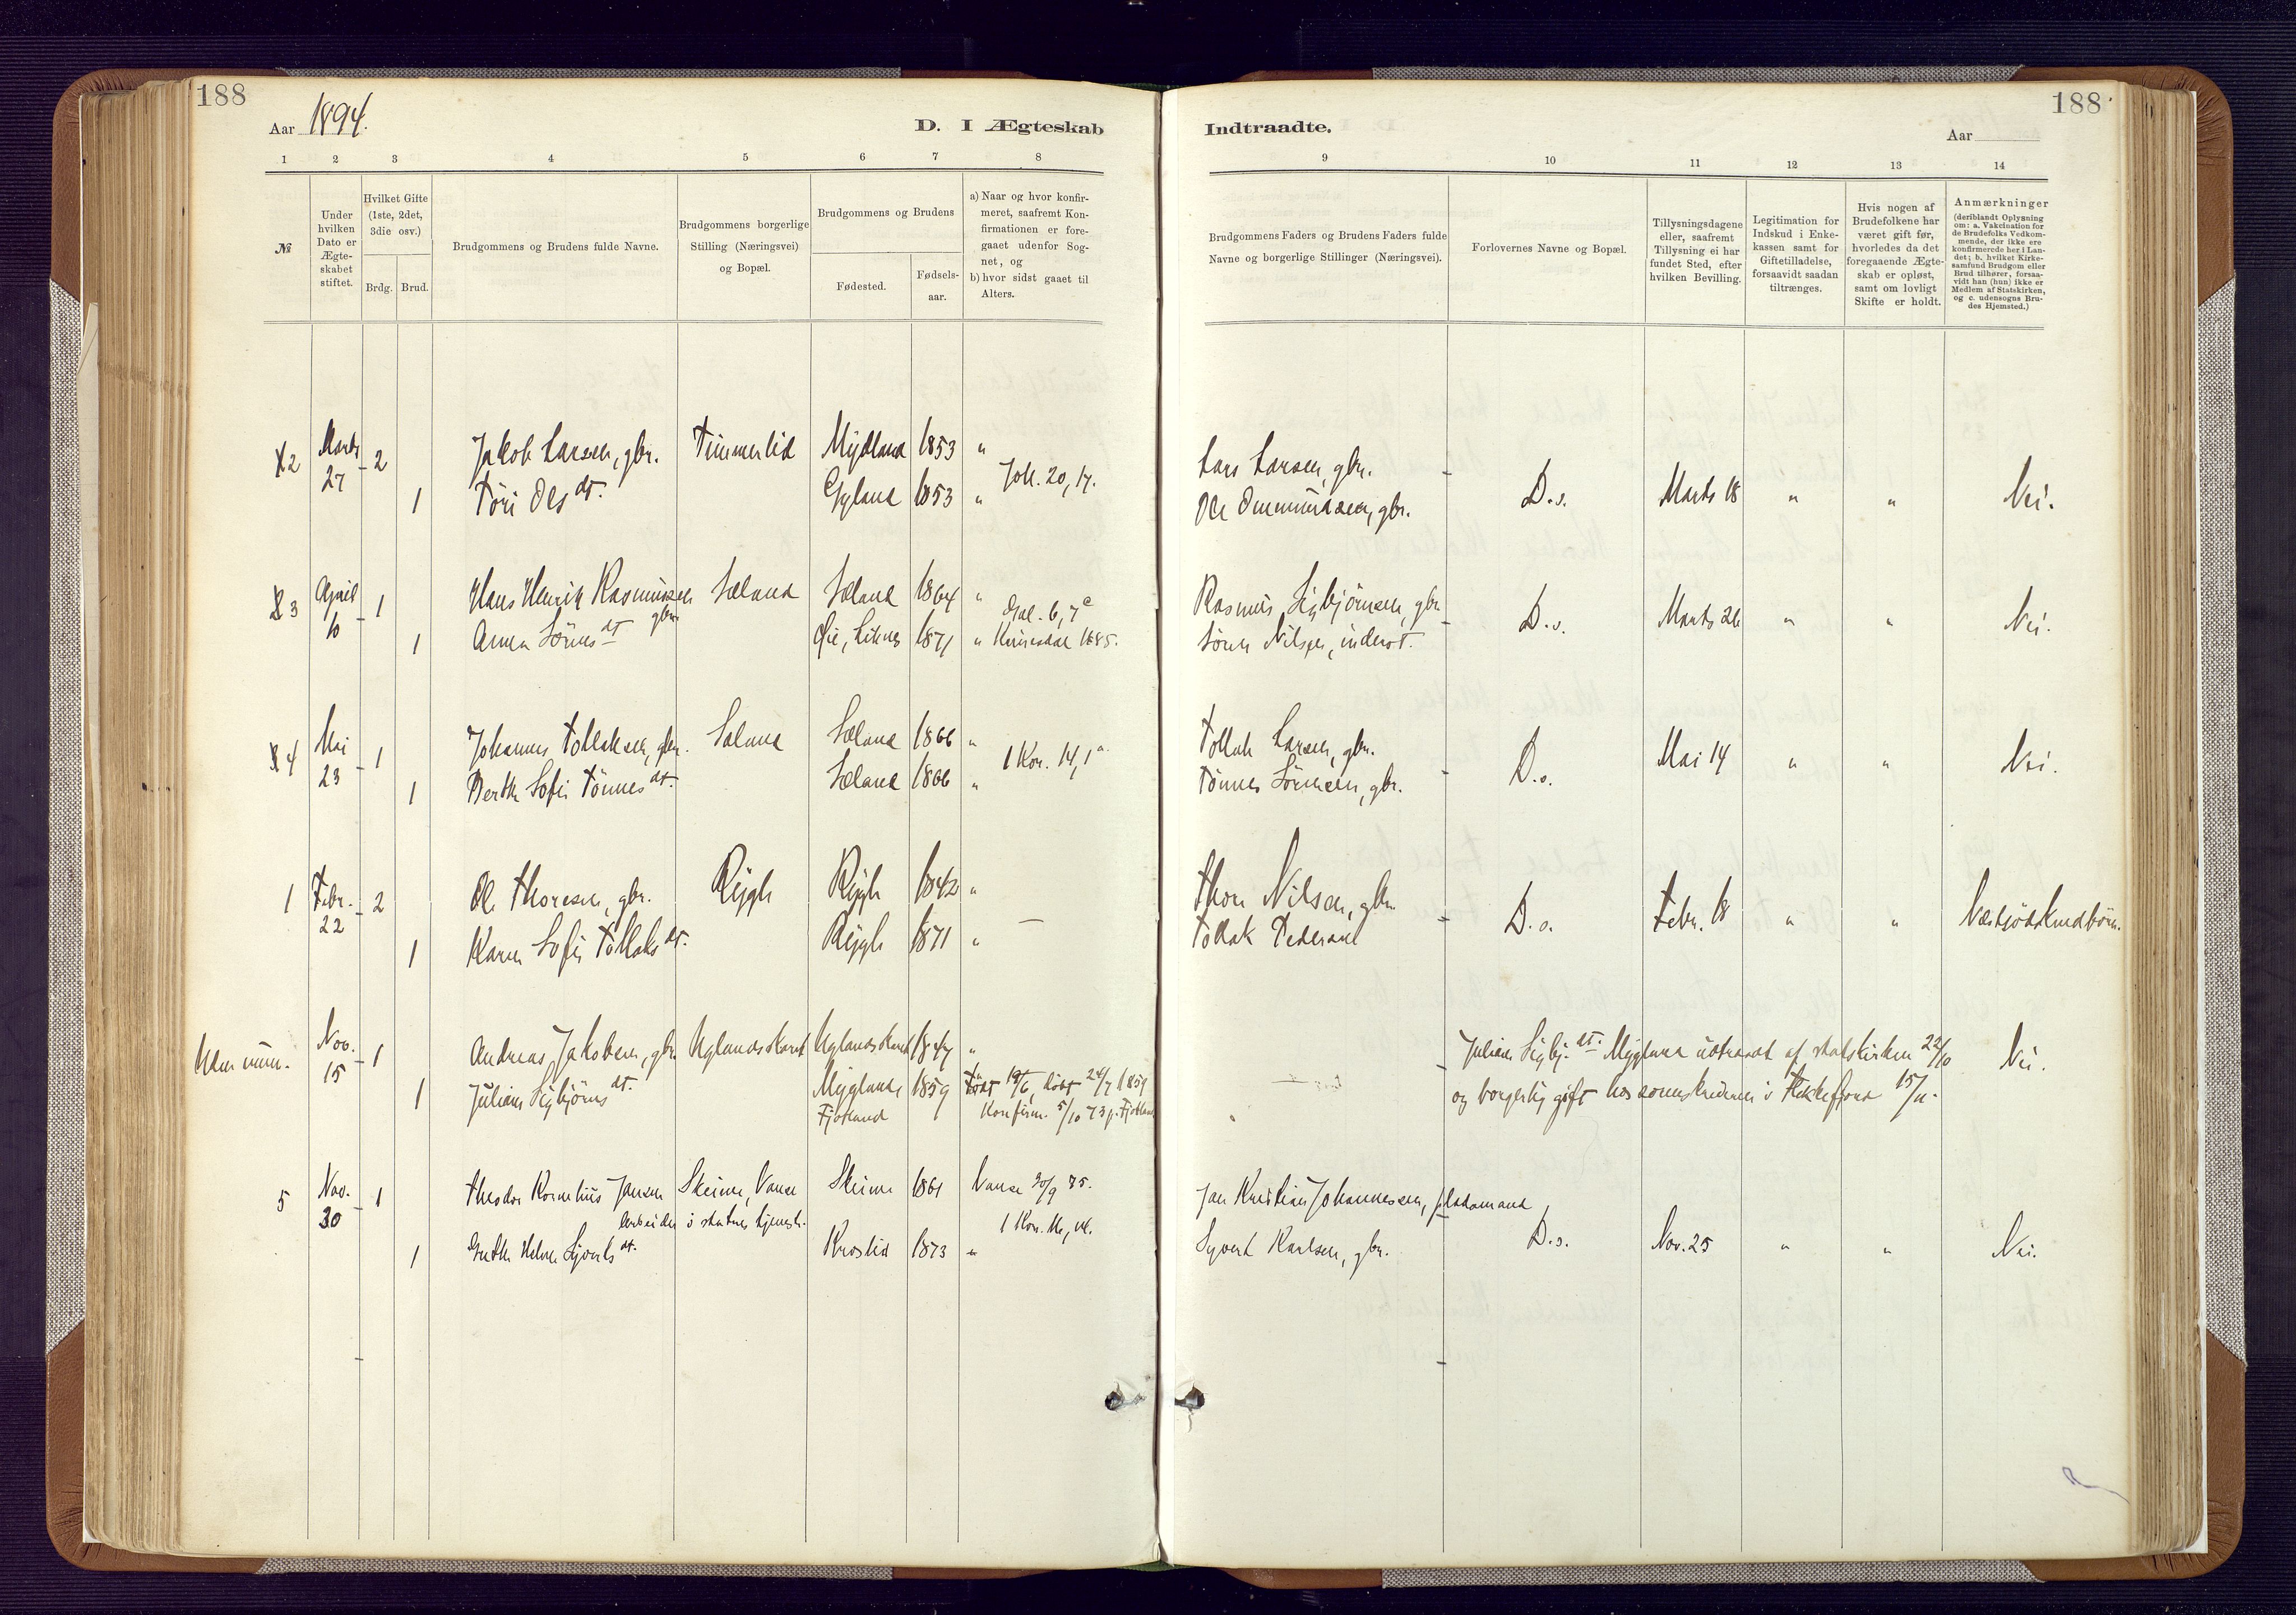 188
Aar 1894.
D. I Ægteskab
1 2 3 4 5 6 7 8
№
Under hvilken Dato er Ægteskabet stiftet.
Hvilket Gifte (1ste, 2det, 3die osv.)
Brdg. Brud.
Brudgommens og Brudens fulde Navne.
Brudgommens borgerlige Stilling (Næringsvei) og Bopæl.
Brudgommens og Brudens
Fødested.
Fødsels-aar.
a) Naar og hvor konfir-
meret, saafremt Kon-
firmationen er fore-
gaaet udenfor Sog-
net, og
b) hvor sidst gaaet til
Alters.
2 Marts 27 2 Jakob Larsen, gbr. Timmerlid Mydland 1853 "
1 Tóri Olsdt. Gyland 1853 " Joh. 20, 17.
3 April 10 1 Hans Henrik Rasmussen gbr. Sæland Sæland 1864 "
Gal. 6, 7
1 Anna Sörensdt Øie, Liknes 1871 " Kvinesdal 1885.
4 Mai 23 1 Johannes Tollaksen, gbr. Sæland Sæland 1866 "
1 Kor. 14, 1
1 Berthe Sofie Tönnesdt. Sæland 1866 "
1 Febr. 22 2 Ole Thoresen, gbr. 1842 "
1 Karen Sofie Tollaksdt. 1871 " —
Uden num. Nov. 15 1 Andreas Jakobsen, gbr. Uglandsskaret Uglandsskaret "
1 Juliane Sigbjörnsdt. Mygland Fjotland 1859 Født 19/6, döbt 24/7 1859
Konfirm. 5/10 73 p. Fjotland
5 Nov. 30 1 Theodor Kornelius Jansen Skeime, Vanse Skeime 1861 Vanse 30/9 75.
Arbeider i statens tjeneste.
1 Grethe Helene Syvertsdt. Kroslid 1873 "
188
Indtraadte.
Aar
9 10 11 12 13 14
Brudgommens Faders og Brudens Faders fulde
Navne og borgerlige Stillinger (Næringsvei).
Forlovernes Navne og Bopæl.
Tillysningsdagene
eller, saafremt
Tillysning ei har
fundet Sted, efter
hvilken Bevilling.
Legitimation for
Indskud i Enke-
kassen samt for
Giftetilladelse,
forsaavidt saadan
tiltrænges.
Hvis nogen af
Brudefolkene har
været gift før,
hvorledes da det
foregaaende Ægte-
skab er opløst,
samt om lovligt
Skifte er holdt.
Anmærkninger
(deriblandt Oplysning
om: a. Vakcination for
de Brudefolks Vedkom-
mende, der ikke ere
konfirmerede her i Lan-
det; b. hvilket Kirke-
samfund Brudgom eller
Brud tilhører, forsaa-
vidt han (hun) ikke er
Medlem af Statskirken,
og c. udensogns Bru-
des Hjemsted.)
Lars Larsen, gbr.
Ole Ommundsen, gbr. D.s. Marts 18 " " Nei.
Rasmus Sigbjörnsen, gbr.
Sören Nilsen, inderst. D.s. Marts 26 " " Nei.
Tollak Larsen, gbr.
Tönnes Sörensen, gbr. D.s. Mai 14 " " Nei.
Thore Nilsen, gbr.
Tollak Pedersen D.s. Febr. 18 " " Næstsödskendbörn.
Juliane Sigbj.dt. Mygland udtraadt af statskirken 22/10 Nei.
og borgerlig gift hos sorenskriveren i Flekkefjord 15/11.
Jan Kristian Johannessen, pladsmand
Syvert Karlsen, gbr. D.s. Nov. 25 " " Nei.